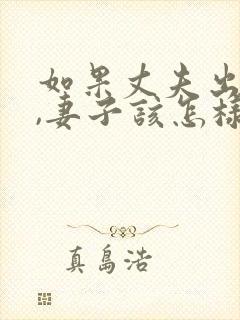 如果丈夫出
,妻子该怎样
真島浩